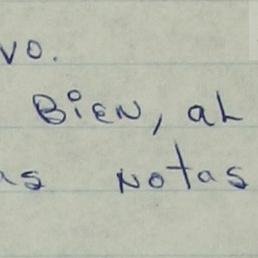 vo.
Bien, al
as notas